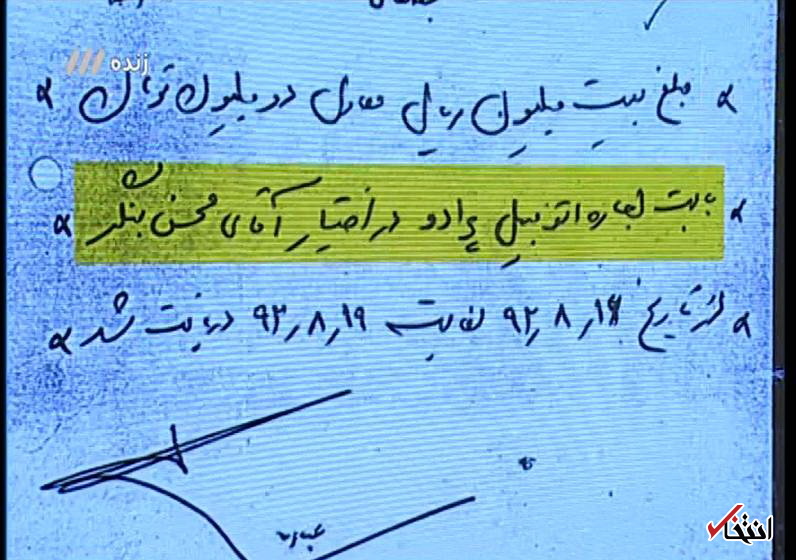 زنده
مبلغ بیست میلیون ریال معادل دو میلیون تومان
بابت اجاره اتومبیل پرادو در اختیار آقای محسن بنگر
از تاریخ ۹۲٫۸٫۱۶ لغایت ۹۲٫۸٫۱۹ دریافت شد
انتخاب